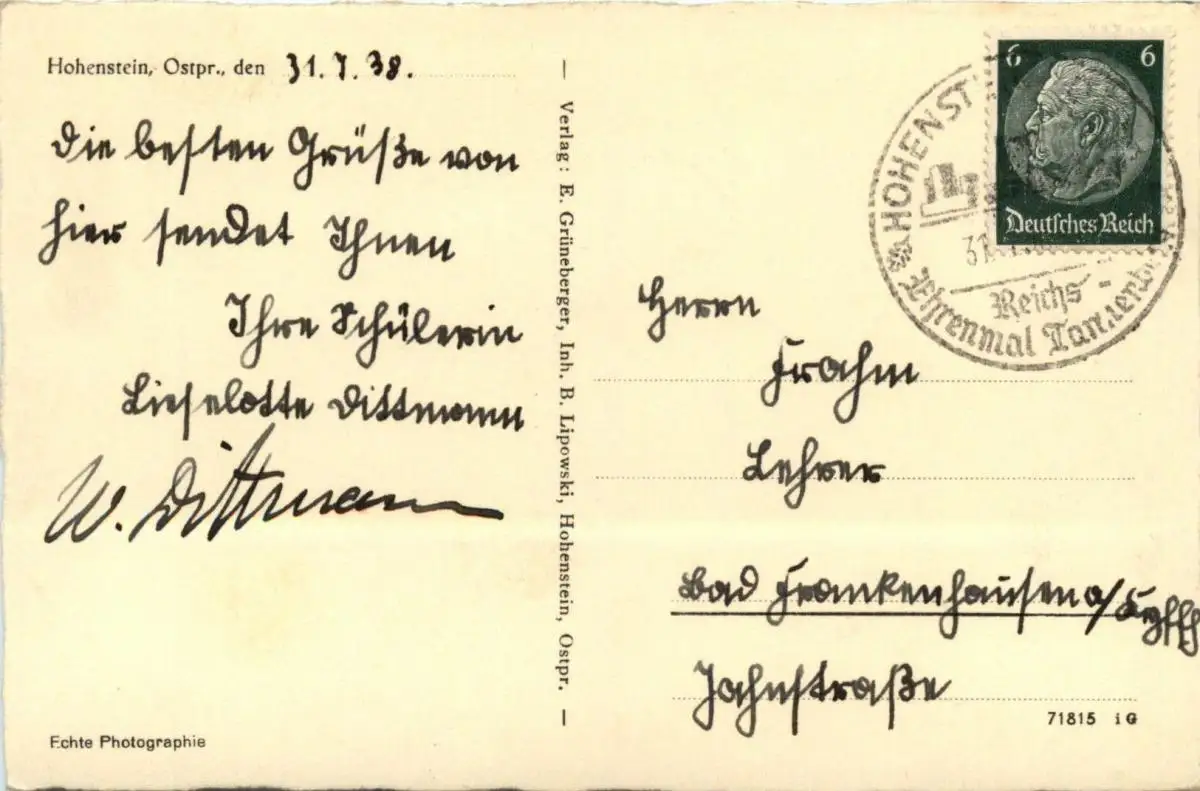 Hohenstein, Ostpr., den 31.7.38.
Die besten Grüße von
hier sendet Ihnen
Ihre Schülerin
Lieselotte Dittmann
W. Dittmann
Echte Photographie
— Verlag: E. Grüneberger, Inh. B. Lipowski, Hohenstein, Ostpr. —
6 6
Deutsches Reich
HOHENST
31.
Reichs-
Ehrenmal Tannenberg
Herrn
Frahm
Lehrer
Bad Frankenhausen a/Kyffh
Jahnstraße
71815 i G